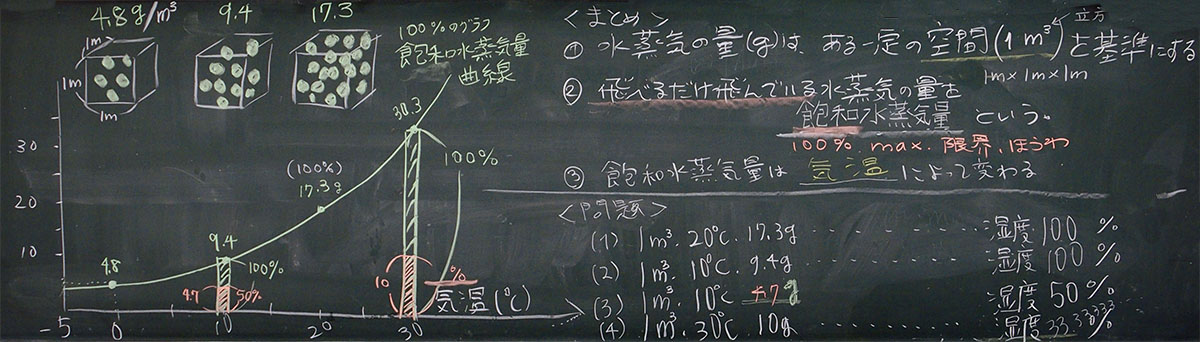 4.8g/m³ 9.4 17.3
1m
1m
1m
100%のグラフ
飽和水蒸気量
曲線
30
20
10
-5 0 10 20 30
気温(℃)
4.8
9.4
100%
4.7 50%
(100%)
17.3g
30.3
100%
10
%
<まとめ>
① 水蒸気の量(g)は、ある一定の空間(1m³)を基準にする
立方
1m×1m×1m
② 飛べるだけ飛んでいる水蒸気の量を
飽和水蒸気量 という。
100%. max. 限界、ほうわ
③ 飽和水蒸気量は 気温 によって変わる
<問題>
(1) 1m³. 20℃. 17.3g ・・・・・ 湿度100 %
(2) 1m³. 10℃. 9.4g ・・・・・ 湿度100 %
(3) 1m³. 10℃ 4.7g ・・・・・ 湿度50 %
(4) 1m³. 30℃ 10g ・・・・・ 湿度33.3333%